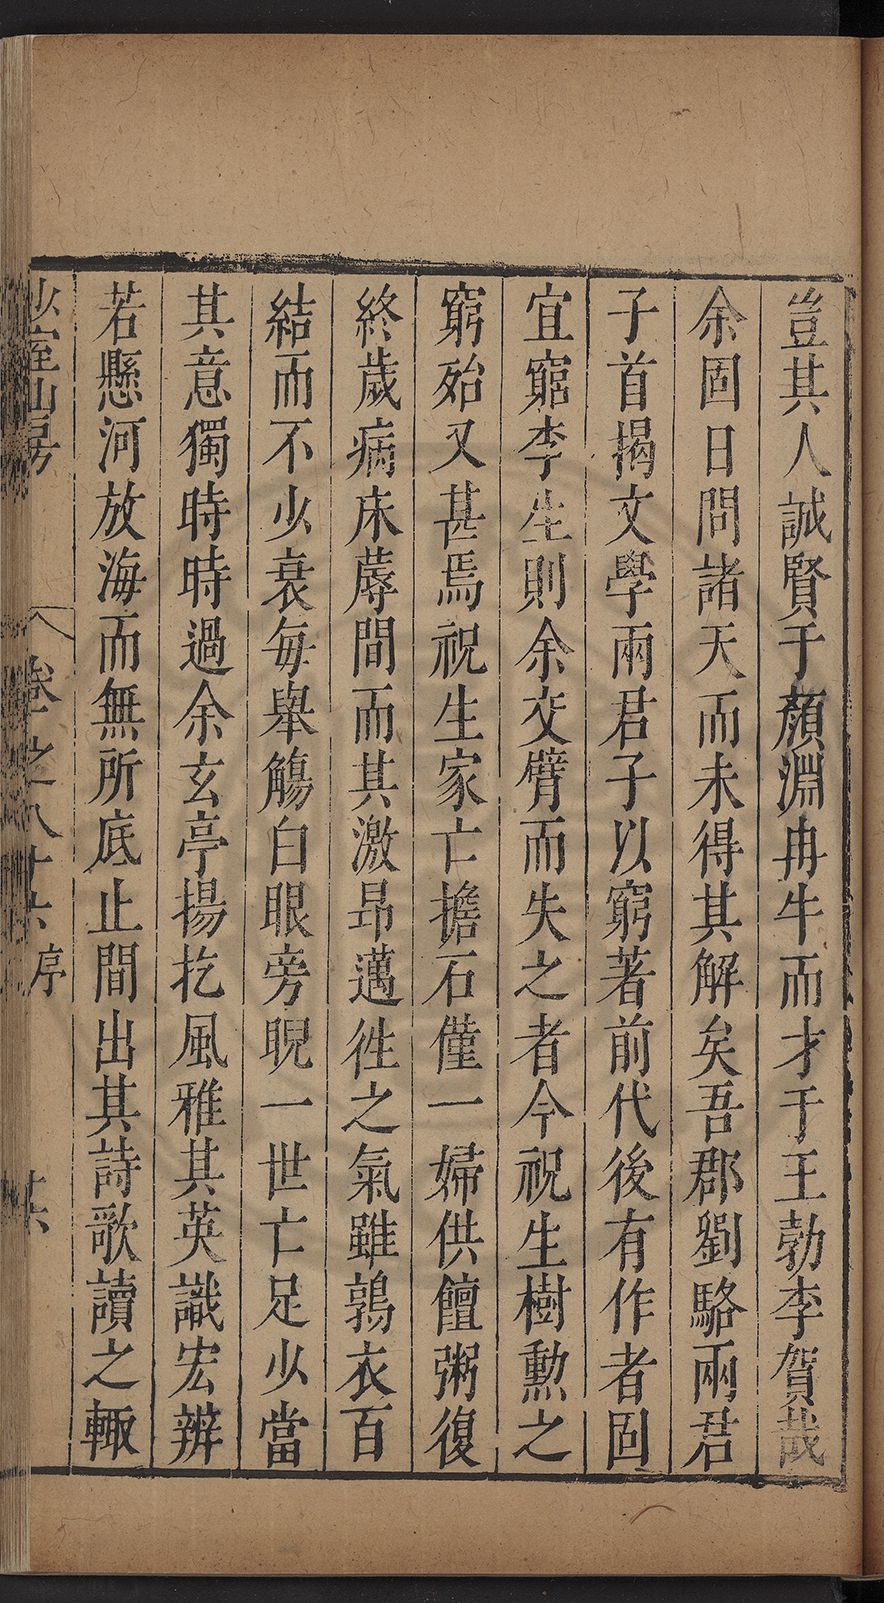 豈其人誠賢于顏淵冉牛而才于王勃李賀哉
余固日問諸天而未得其解矣吾郡劉駱兩君
子首揭文學兩君子以窮著前代後有作者固
宜窮李生則余交臂而失之者今祝生樹勲之
窮殆又甚焉祝生家亡擔石僅一婦供饘粥復
終歲病床蓐間而其激昂邁徃之氣雖鶉衣百
結而不少衰每舉觴白眼旁睨一世亡足少當
其意獨時時過余玄亭揚扢風雅其英識宏辨
若懸河放海而無所底止間出其詩歌讀之輙
少室山房
卷之八十六 序